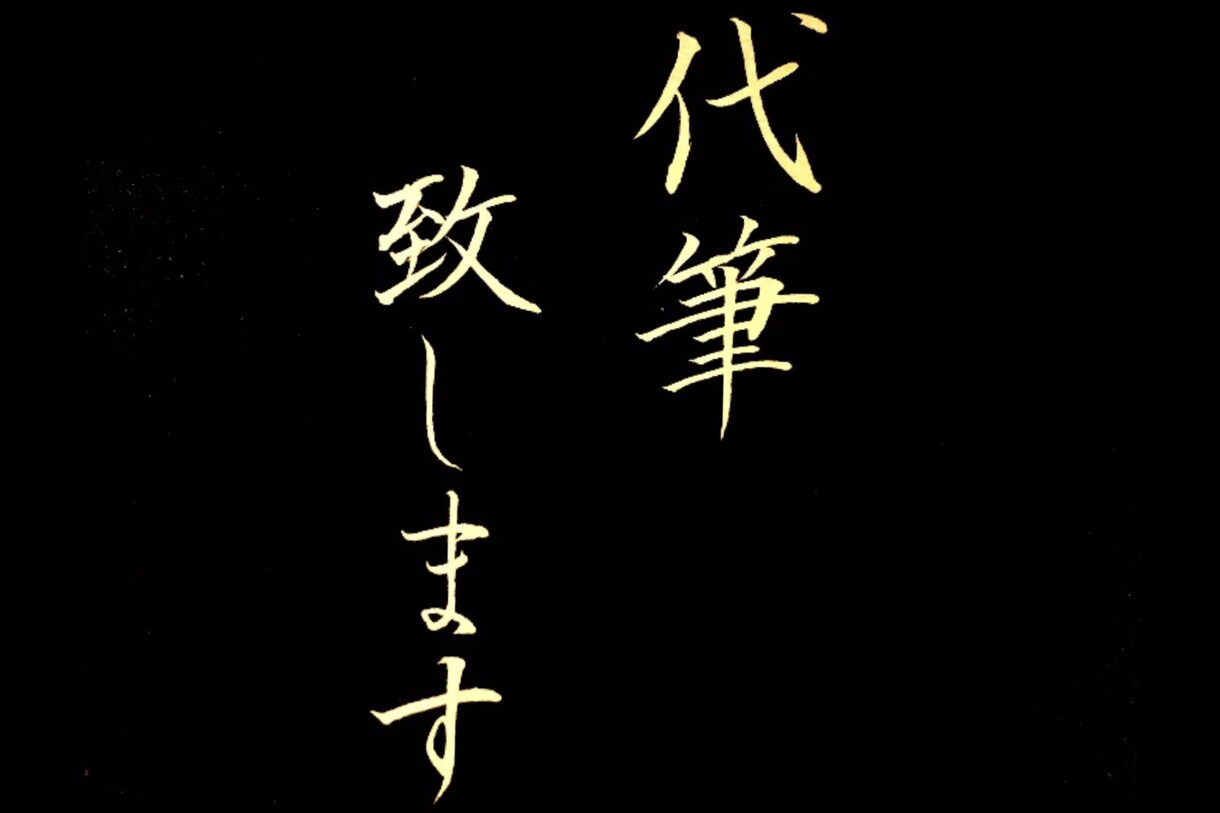 代筆
致します